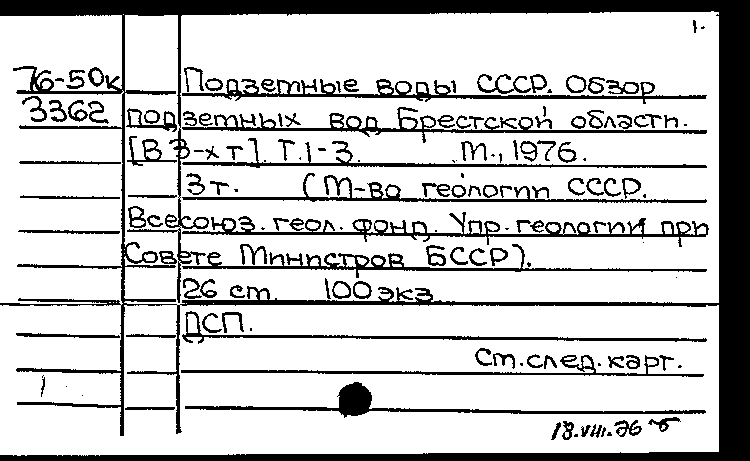 1.
76-50к Подземные воды СССР. Обзор
3362 подземных вод Брестской области.
[В 3-х т]. Т.1-3. М., 1976.
3т. (М-во геологии СССР.
Всесоюз. геол. фонд. Упр. геологии при
Совете Министров БССР).
26 см. 100 экз.
ДСП.
См. след. карт.
18.VIII.76